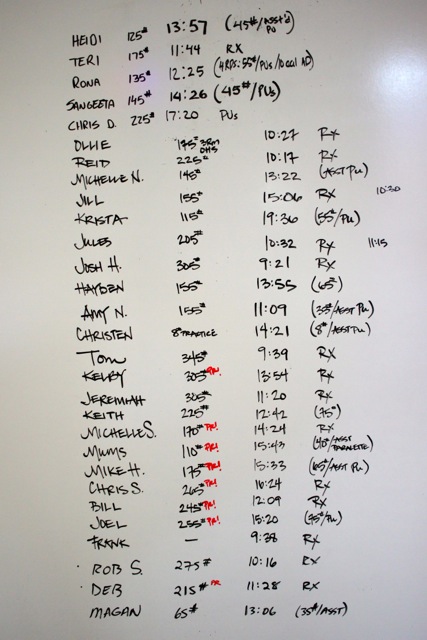 HEIDI 125# 13:57 (45#/ASST'D PU)
TERI 175# 11:44 RX
RONA 135# 12:25
SANGEETA 145# 14:26 (45#/PUs)
CHRIS D. 225# 17:20 PUs
OLLIE 175# 3RM OHS 10:27 RX
REID 225# 10:17 RX
MICHELLE N. 145# 13:22 (ASST PU)
JILL 155# 15:06 RX 10:30
KRISTA 115# 19:36 (55#/PU)
JULES 205# 10:32 RX 11:15
JOSH H. 305# 9:21 RX
HAYDEN 155# 13:55 (65#)
AMY N. 155# 11:09 (35#/ASST PU)
CHRISTEN 8# PRACTICE 14:21 (8#/ASST PU)
TOM 345# 9:39 RX
KELBY 305# PR! 13:54 RX
JEREMIAH 305# 11:20 RX
KEITH 225# 12:42 (75#)
MICHELLE S. 170# PR! 14:24 RX
MUMS 110# PR! 15:43 (40#/ASST
MIKE H. 175# PR! 15:33 (65#/ASST PU)
CHRIS S. 265# PR! 16:24 RX
BILL 245# PR! 12:09 RX
JOEL 255# PR! 15:20 (75#/PU)
FRANK — 9:38 RX
ROB S. 275# 10:16 RX
DEB 215# PR 11:28 RX
MAGAN 65# 13:06 (35#/ASST)